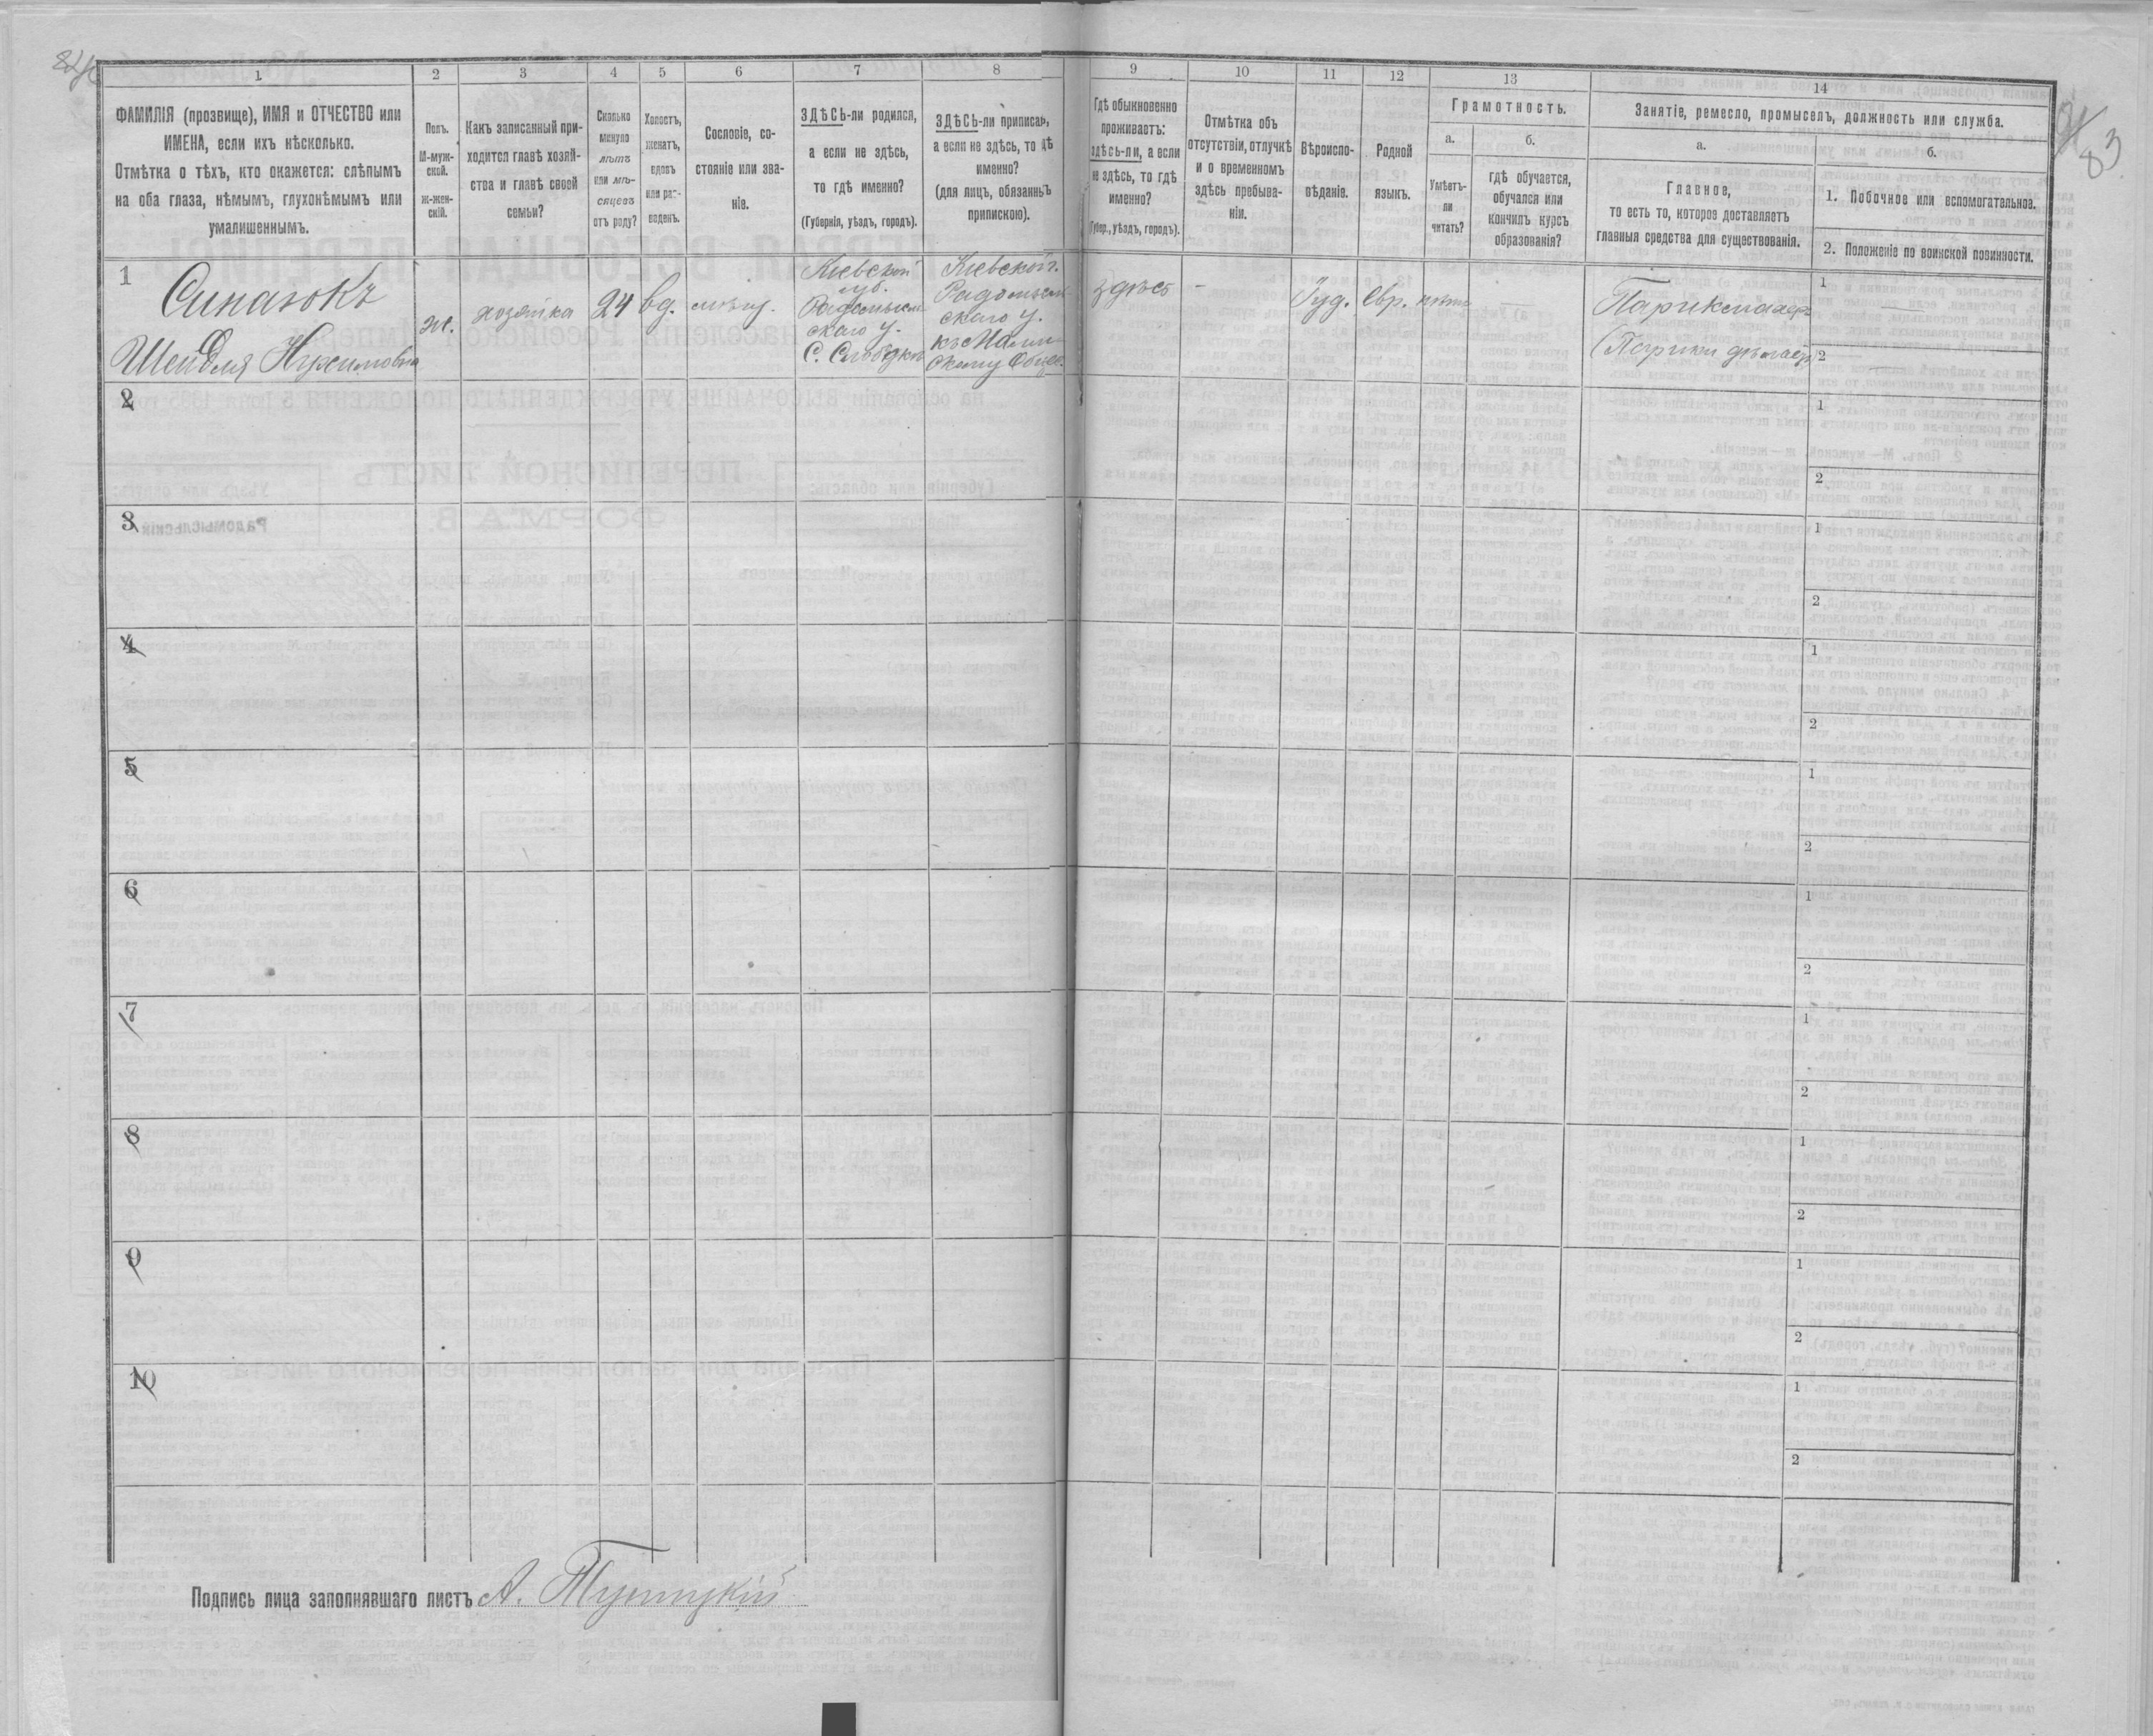 1
ФАМИЛІЯ (прозвище), ИМЯ и ОТЧЕСТВО или
ИМЕНА, если ихъ нѣсколько.
Отмѣтка о тѣхъ, кто окажется: слѣпымъ
на оба глаза, нѣмымъ, глухонѣмымъ или
умалишеннымъ.
2
Полъ.
М-муж-
ской.
ж-жен-
скій.
3
Какъ записанный при-
ходится главѣ хозяй-
ства и главѣ своей
семьи?
4
Сколько
минуло
лѣтъ
или мѣ-
сяцевъ
отъ роду?
5
Холостъ,
женатъ,
вдовъ
или раз-
веденъ.
6
Сословіе, со-
стояніе или зва-
ніе.
7
ЗДѢСЬ-ли родился,
а если не здѣсь,
то гдѣ именно?
(Губернія, уѣздъ, городъ).
8
ЗДѢСЬ-ли приписанъ,
а если не здѣсь, то гдѣ
именно?
(для лицъ, обязанныхъ
припискою).
9
Гдѣ обыкновенно
проживаетъ:
здѣсь-ли, а если
не здѣсь, то гдѣ
именно?
(Губер., уѣздъ, городъ).
10
Отмѣтка объ
отсутствіи, отлучкѣ
и о временномъ
здѣсь пребыва-
ніи.
11
Вѣроиспо-
вѣданіе.
12
Родной
языкъ.
13
Грамотность.
а.
Умѣетъ-
ли
читать?
б.
гдѣ обучается,
обучался или
кончилъ курсъ
образованія?
14
Занятіе, ремесло, промыселъ, должность или служба.
а.
Главное,
то есть то, которое доставляетъ
главныя средства для существованія.
б.
1. Побочное или вспомогательное.
2. Положеніе по воинской повинности.
1
Синаюкъ
Шейдля Нухимовна
ж.
хозяйка
24
вд.
мѣщ.
Кіевской
губ.
Радомысль-
скаго у.
С. Слободка
Кіевской г.
Радомысль-
скаго у.
къ Мали-
скому Общес.
здѣсь
-
Іуд.
Евр.
нѣтъ
—
Парикмахер
(Парики дѣлаетъ)
1
2
2
1
2
3
1
2
4
1
2
5
1
2
6
1
2
7
1
2
8
1
2
9
1
2
10
1
2
Подпись лица заполнявшаго листъ А.
83